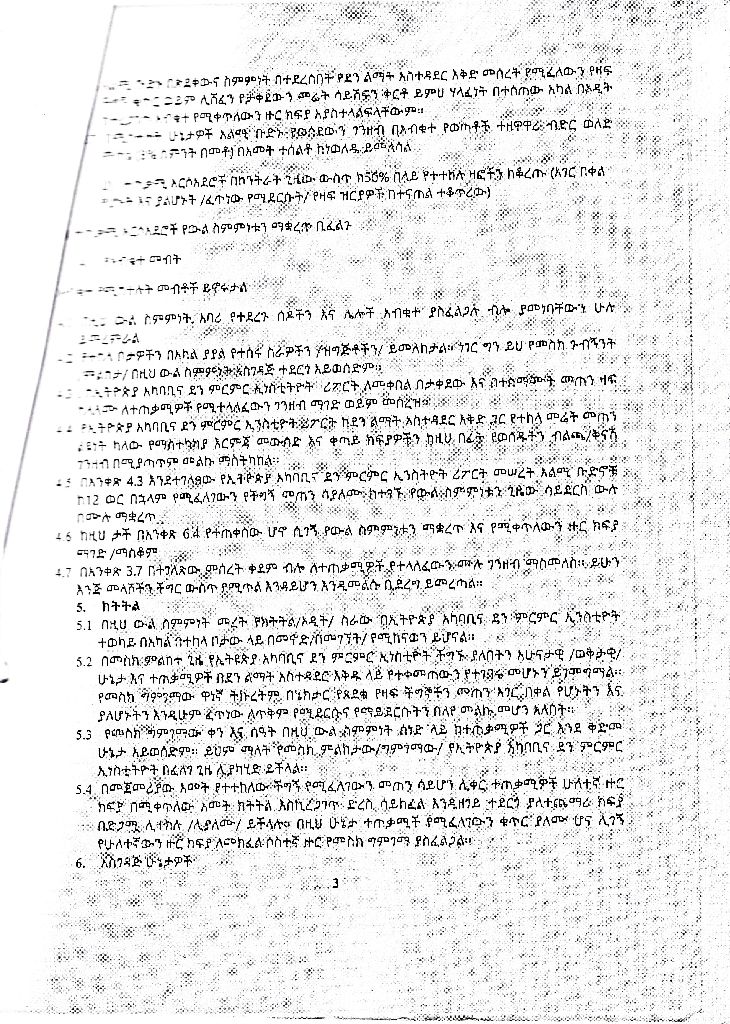 በጸደቀውና ስምምነት በተደረሰበት የደን ልማት አስተዳደር እቅድ መሰረት የሚፈለውን የዛፍ
ሊሸፈን የታቀደውን መሬት ሳይሸፍን ቀርቶ ይምህ ሃላፊነት በተሰጠው አካል በኦዲት
የሚቀጥለውን ዙር ክፍያ አያስተላልፍላቸውም።
ሁኔታዎች አልሚ ቡድኑ የወሰደውን ገንዘብ በአብቁተ የወጣቶች ተዘዋዋሪ ብድር ወለድ
በመቶ) በአመት ተሰልቶ ከነወለዱ ይመላሳል
አርሶአደሮች በኮንትራት ጊዜው ውስጥ ከ50% በላይ የተተከሉ ዛፎችን ከቆረጡ (አገር በቀል
እና ያልሆኑት /ፈጥነው የማደርሱት/ የዛፍ ዝርያዎች በተናጠል ተቆጥረው)
አርሶአደሮች የውል ስምምነቱን ማቋረጥ ቢፈልጉ
መብት
መብቶች ይኖሩታል
ውል ስምምነት አባሪ የተደረጉ ሰዶችን እና ሌሎች አብቁተ ያስፈልጋሉ ብሎ ያመነባቸውን ሁሉ
ቦታዎችን በአካል ያያል የተሰሩ ስራዎችን /ዝግጅቶችን/ ይመለከታል። ነገር ግን ይህ የመስክ ጉብኝንት
በዚህ ውል ስምምነት አስገዳጅ ተደርጎ አይወሰድም።
አካባቢና ደን ምርምር ኢንስቲትዮት ሪፖርት ለመቀበል በታቀደው እና በተስማሙት መጠን ዛፍ
ለተጠቃሚዎች የሚተላለፈውን ገንዘብ ማገድ ወይም መሰረዝ።
4.4 የኢትዮጵያ አካባቢና ደን ምርምር ኢንስቲዮት ሪፖርት ከደን ልማት አስተዳደር እቅድ ጋር የተከላ መሬት መጠን
ልዩነት ካለው የማስተካከያ እርምጃ መውሰድ እና ቀጣይ ክፍያዎችን ከዚህ በፊት የወሰዱትን ብልጫ/ቅናሽ
ገንዘብ በሚያጣጥም መልኩ ማስትካከል።
4.5 በአንቀጽ 4.3 እንደተገለፀው የኢትዮጵያ አካባቢና ደን ምርምር ኢንስትዮት ሪፖርት መሠረት አልሚ ቡድኖቹ
ከ12 ወር በኋላም የሚፈለገውን የችግኝ መጠን ሳያለሙ ከተገኙ የውል ስምምነቱን ጊዜው ሳይደርስ ውሉ
በሙሉ ማቋረጥ
4.6 ከዚህ ታች በአንቀጽ 6.4 የተጠቀሰው ሆኖ ሲገኝ የውል ስምምነቱን ማቋረጥ እና የሚቀጥለውን ዙር ክፍያ
ማገድ /ማስቆም
4.7 በአንቀጽ 3.7 በተገለጸው መሰረት ቀደም ብሎ ለተጠቃሚዎች የተላለፈውን ሙሉ ገንዘብ ማስመለስ። ይሁን
እንጅ መላሾችን ችግር ውስጥ የሚጥል እንዳይሆን እንዲመልሱ ቢደረግ ይመረጣል።
5. ክትትል
5.1 በዚህ ውል ስምምነት መረት የክትትል/ኦዲት/ ስራው በኢትዮጵያ አካባቢና ደን ምርምር ኢንስቲዮት
ተወካይ በአካል በተከላ ቦታው ላይ በመኖድ/በመገኘት/ የሚከናወን ይሆናል።
5.2 በመስክ ምልከተ ጊዜ የኢትዩጵያ አካባቢና ደን ምርምር ኢንስቲዮት ችግኙ ያለበትን አሁናታዊ /ወቅታዊ/
ሁኔታ እና ተጠቃሚዎች በደን ልማት አስተዳደር እቅዱ ላይ የተቀመጠውን የተገበሩ መሆኑን ይገመግማል።
የመስክ ግምገማው ዋነኛ ትኩረትም በኔክታር የጸደቁ የዛፍ ችግኞችን መጠን አገር በቀል የሆኑትን እና
ያልሆኑትን እንዲሁም ፈጥነው ለጥቅም የሚደርሱና የማይደርሱትን በለየ መልኩ መሆን አለበት።
5.3 የመስክ ግምገማው ቀን እና ሰዓት በዚህ ውል ስምምነት ሰነድ ላይ ከተጠቃሚዎች ጋር እንደ ቅድመ
ሁኔታ አይወሰድም። ይህም ማለት የመስክ ምልከታው/ግምገማው/ የኢትዮጵያ አካባቢና ደን ምርምር
ኢንስቲትዮት በፈለገ ጊዜ ሊያካሂድ ይችላል።
5.4 በመጀመሪያው አመት የተተከለው ችግኝ የሚፈለገውን መጠን ሳይሆን ሊቀር ተጠቃሚዎች ሁለተኛ ዙር
ክፍያ በሚቀጥለው አመት ክትትል እስኪረጋገጥ ድረስ ሳይከፈል እንዲዘገይ ተደርጎ ያለተጨማሪ ክፍያ
በድጋሚ ሊተክሉ /ሊያለሙ/ ይችላሉ። በዚህ ሁኔታ ተጠቃሚች የሚፈለገውን ቁጥር ያለሙ ሆና ሊገኝ
የሁለተኛውን ዙር ክፍያ ለመክፈል ሶስተኛ ዙር የመስክ ግምገማ ያስፈልጋል።
6. አስገዳጅ ሁኔታዎች
3